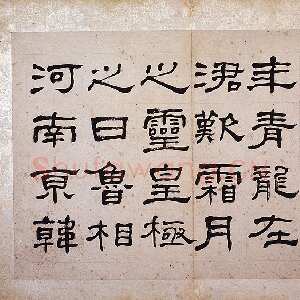 年青龍在
涒歎霜月
之靈皇極
之日魯相
河南京韓